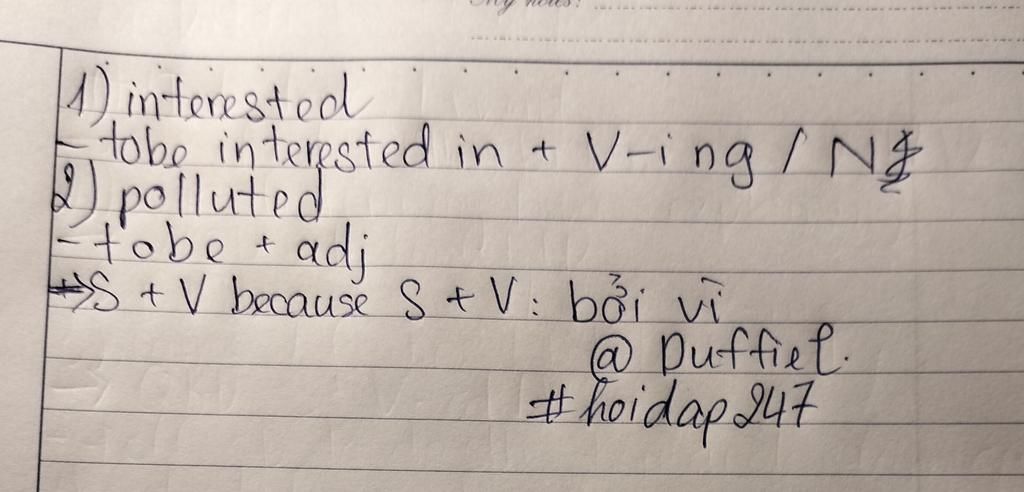 My notes:
1) interested
- tobe interested in + V-ing / N
2) polluted
- tobe + adj
=> S + V because S + V: bởi vì
@ Duffiel.
#hoidap247